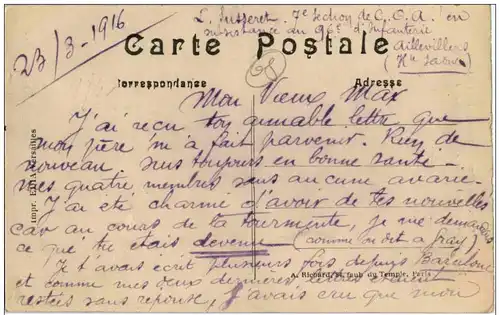 23/3-1916
L. Susseret. 7e section de C.O.A. en
subsistance du 96e d'Infanterie
Aillevillers
(Hte Saône)
Carte Postale
Correspondance
Adresse
Mon Vieux Max
J'ai reçu ton aimable lettre que
mon père m'a fait parvenir. Rien de
nouveau suis toujours en bonne santé -
mes quatre membres sans aucune avarie.
J'ai été charmé d'avoir de tes nouvelles
car au cours de la tourmente, je me demandais
ce que tu étais devenu (comme on dit à Gray)
Je t'avais écrit plusieurs fois depuis Barcelone
et comme mes deux dernières lettres étaient
restées sans réponse, j'avais cru que mon
A. Richard, 84, faub. du Temple, Paris
Impr. Versailles